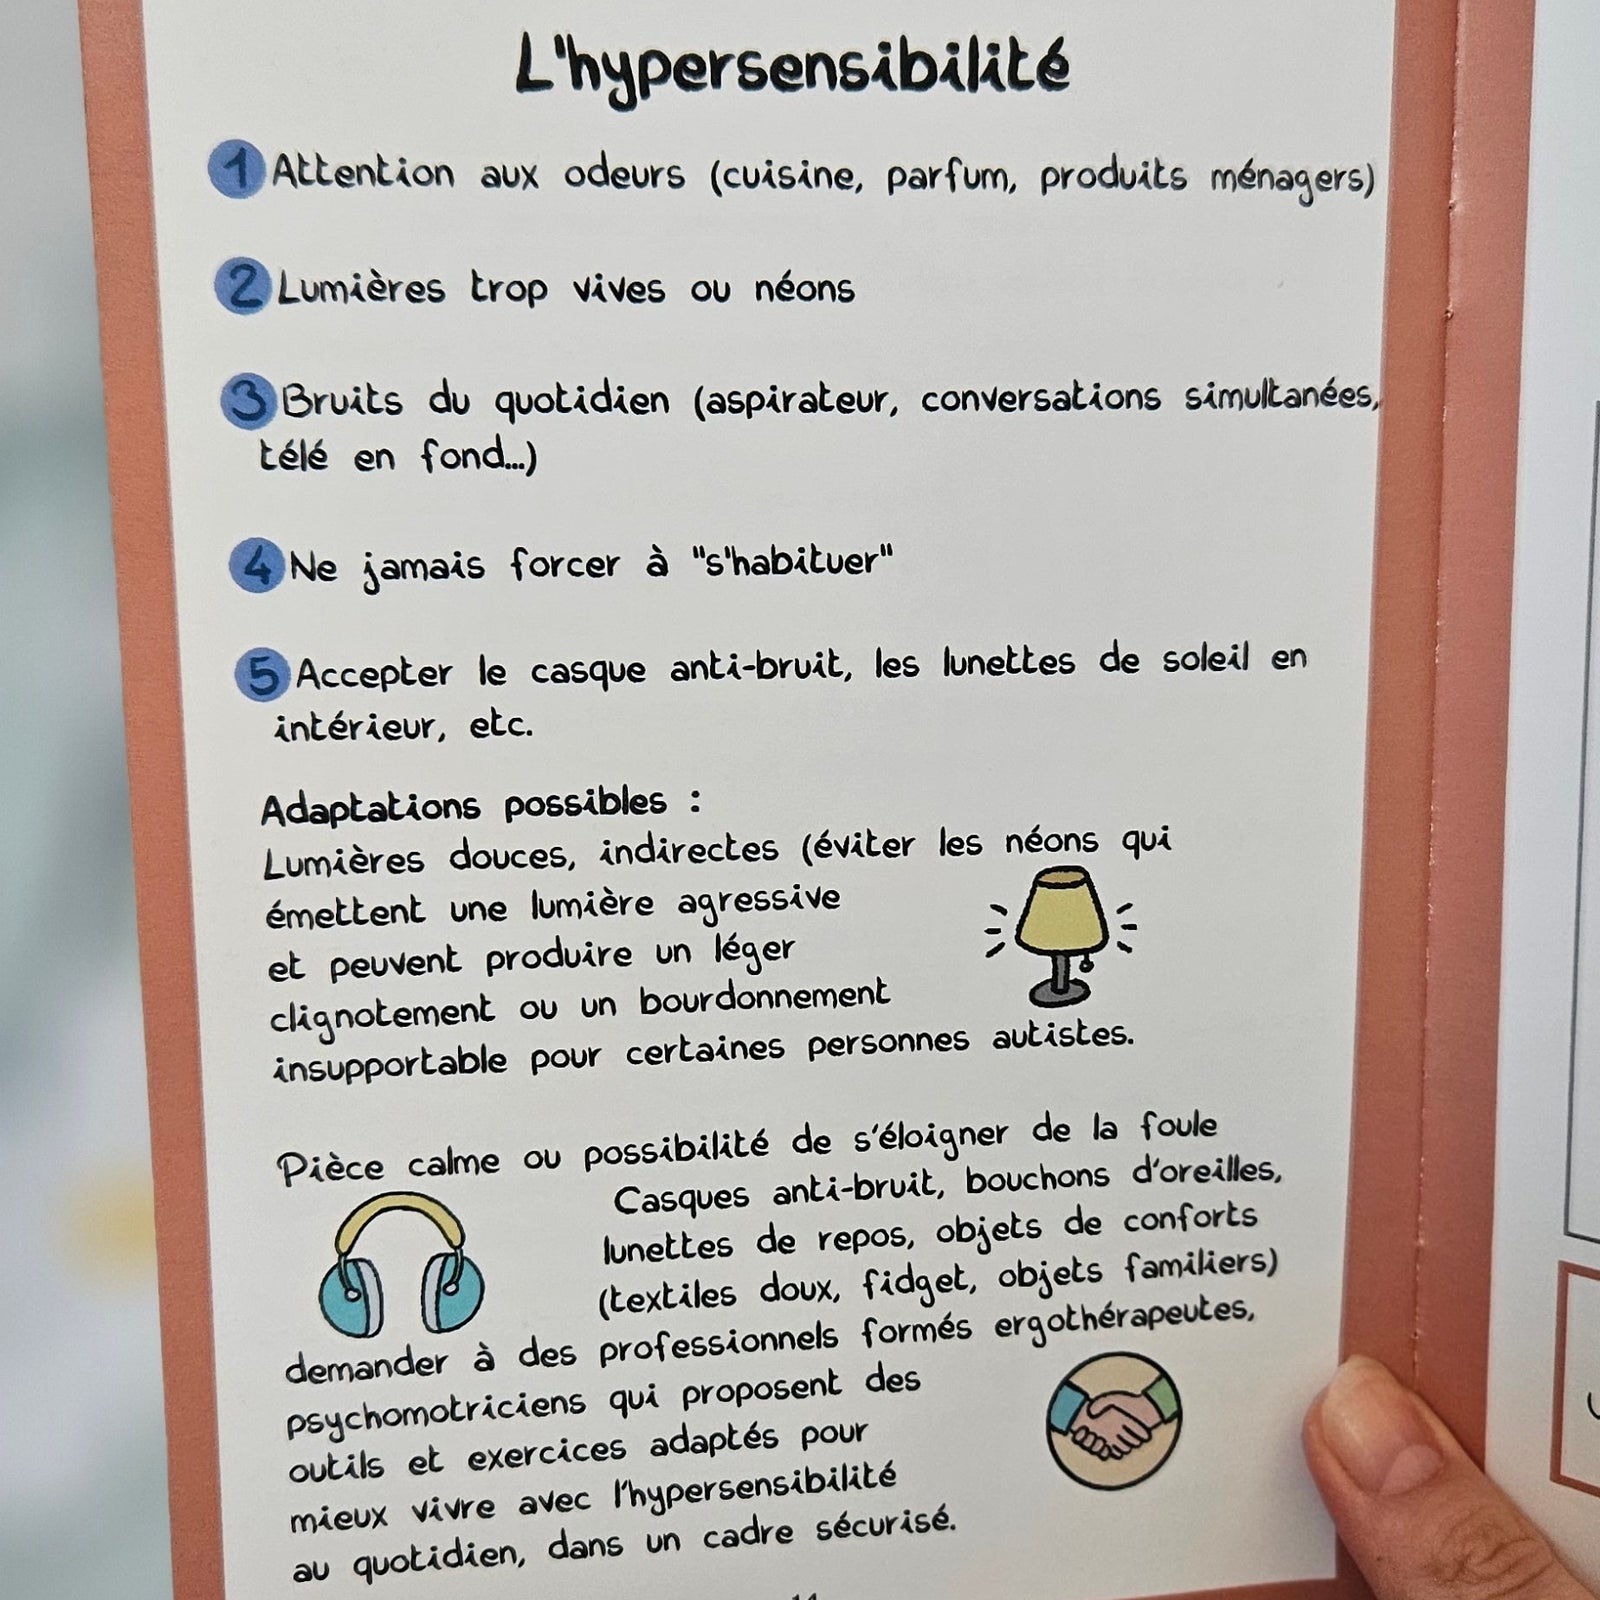 L'hypersensibilité
1 Attention aux odeurs (cuisine, parfum, produits ménagers)
2 Lumières trop vives ou néons
3 Bruits du quotidien (aspirateur, conversations simultanées,
télé en fond...)
4 Ne jamais forcer à "s'habituer"
5 Accepter le casque anti-bruit, les lunettes de soleil en
intérieur, etc.
Adaptations possibles :
Lumières douces, indirectes (éviter les néons qui
émettent une lumière agressive
et peuvent produire un léger
clignotement ou un bourdonnement
insupportable pour certaines personnes autistes.
Pièce calme ou possibilité de s'éloigner de la foule
Casques anti-bruit, bouchons d'oreilles,
lunettes de repos, objets de conforts
(textiles doux, fidget, objets familiers)
demander à des professionnels formés ergothérapeutes,
psychomotriciens qui proposent des
outils et exercices adaptés pour
mieux vivre avec l'hypersensibilité
au quotidien, dans un cadre sécurisé.